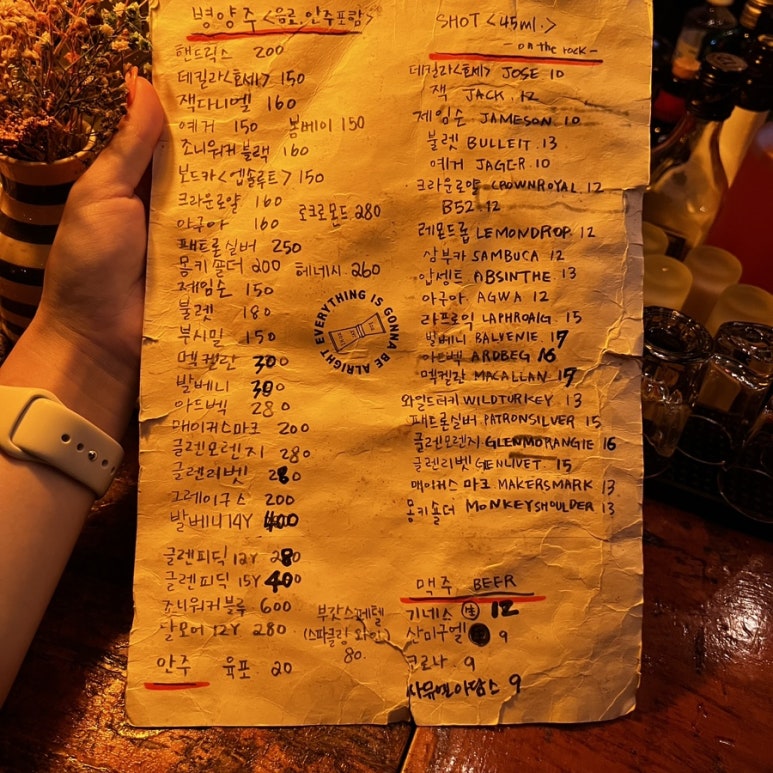 병양주 <음료. 안주포함>
핸드릭스 200
데킬라<호세> 150
잭다니엘 160
예거 150 봄베이 150
조니워커블랙 160
보드카<앱솔루트> 150
크라운로얄 160
아구아 160 로크로몬드 280
패트론실버 250
몽키숄더 200 헤네시. 260
제임슨 150
불렛 180
부시밀 150
멕켈란 300
발베니 300
아드벡 280
메이커스마크 200
글렌모렌지 280
글렌리벳 280
그레이구스 200
발베니14Y 400
글렌피딕 12Y 280
글렌피딕 15Y 400
죠니워커블루 600
달모어 12Y 280
부갓스페텔
(스파클링 와인)
80.
안주 육포 20
EVERYTHING IS GONNA BE ALRIGHT
SHOT <45ml.>
- on the rock -
데킬라<호세> JOSE 10
잭 JACK. 12
제임슨 JAMESON. 10
불렛 BULLEIT. 13
예거 JAGER. 10
크라운로얄 CROWNROYAL. 12
B52 12
레몬드롭 LEMONDROP. 12
삼부카 SAMBUCA. 12
압센트 ABSINTHE. 13
아구아 AGWA 12
라프로익 LAPHROAIG. 15
발베니 BALVENIE. 17
아드벡 ARDBEG 16
멕켈란 MACALLAN. 17
와일드터키 WILDTURKEY. 13
패트론실버 PATRONSILVER. 15
글렌모렌지 GLENMORANGIE 16
글렌리벳 GLENLIVET. 15
메이커스 마크. MAKERSMARK 13
몽키숄더 MONKEYSHOULDER 13
맥주 BEER
기네스 生 12
산미구엘 9
코로나. 9
사뮤엘아담스 9